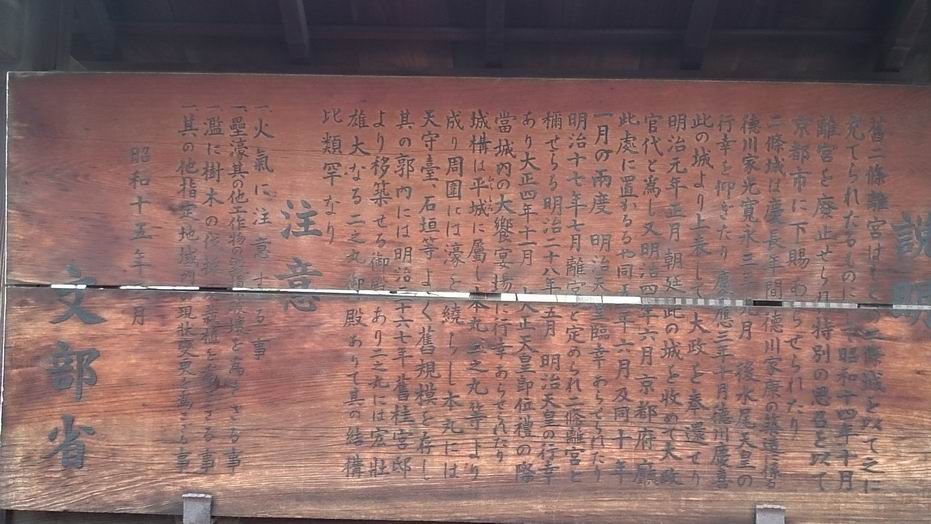 説明
舊二條離宮はもと二條城を以て之に
充てられたるものに 昭和十四年十月
離宮を廢止せられ 特別の思召を以て
京都市に下賜 あらせられたり
二條城は慶長年間 德川家康の築造 係
德川家光寛永三年九月 後水尾天皇の
行幸を仰ぎたり 慶應三年十月德川慶喜
此の城より上表して大政を奉還せり
明治元年正月朝廷此の城を收めて太政
官代と爲し又明治四年六月京都府廳
此處に置かるるや同 年二月及同十年
一月の兩度 明治天皇臨幸あらせられたり
明治十七年七月離宮と定められ二條離宮と
稱せらる明治二十八年五月 明治天皇の行幸
あり大正四年十一月 大正天皇卽位禮の際
當城內の大饗宴場に行幸あらせられたり
城構は平城に屬し本丸二之丸等より
成り周圍には濠を繞らし本丸には
天守臺、石垣等よく舊規模を存し
其の郭內には明治二十六年舊桂宮邸
より移築せる御殿あり二之丸には宏壯
雄大なる二之丸御殿ありて其の結構
比類罕なり
注意
一火氣に注意する事
一壘濠其の他工作物の を爲さざる事
一濫に樹木の伐採 植を爲さざる事
一其の他指定地域 の現狀變更を爲さざる事
昭和十五年 月
文部省